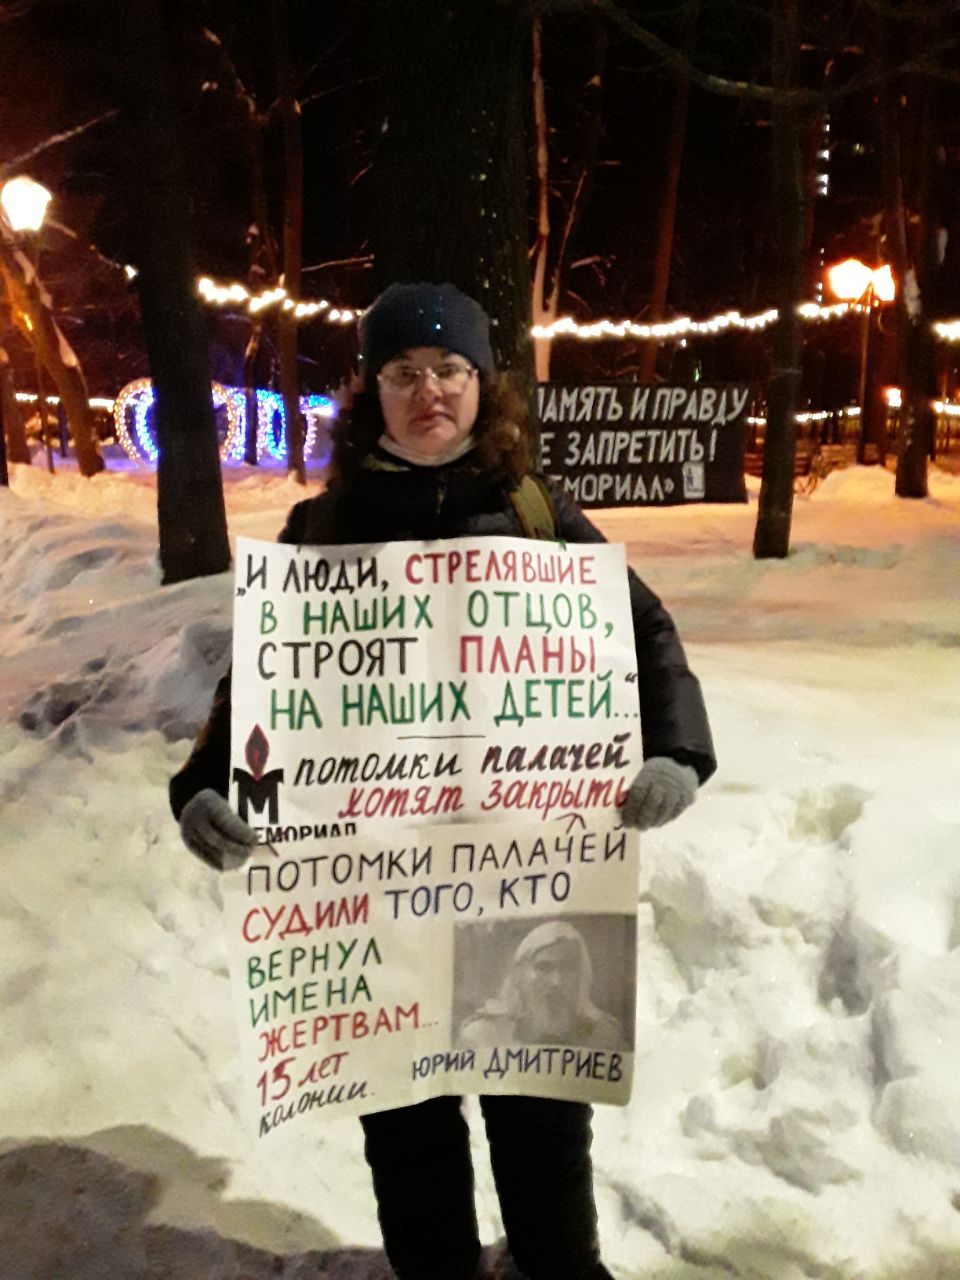 ПАМЯТЬ И ПРАВДУ
Е ЗАПРЕТИТЬ!
ЕМОРИАЛ»
„И ЛЮДИ, СТРЕЛЯВШИЕ
В НАШИХ ОТЦОВ,
СТРОЯТ ПЛАНЫ
НА НАШИХ ДЕТЕЙ..."
потомки палачей
хотят закрыть
МЕМОРИАЛ
ПОТОМКИ ПАЛАЧЕЙ
СУДИЛИ ТОГО, КТО
ВЕРНУЛ
ИМЕНА
ЖЕРТВАМ...
15 лет
колонии.
ЮРИЙ ДМИТРИЕВ